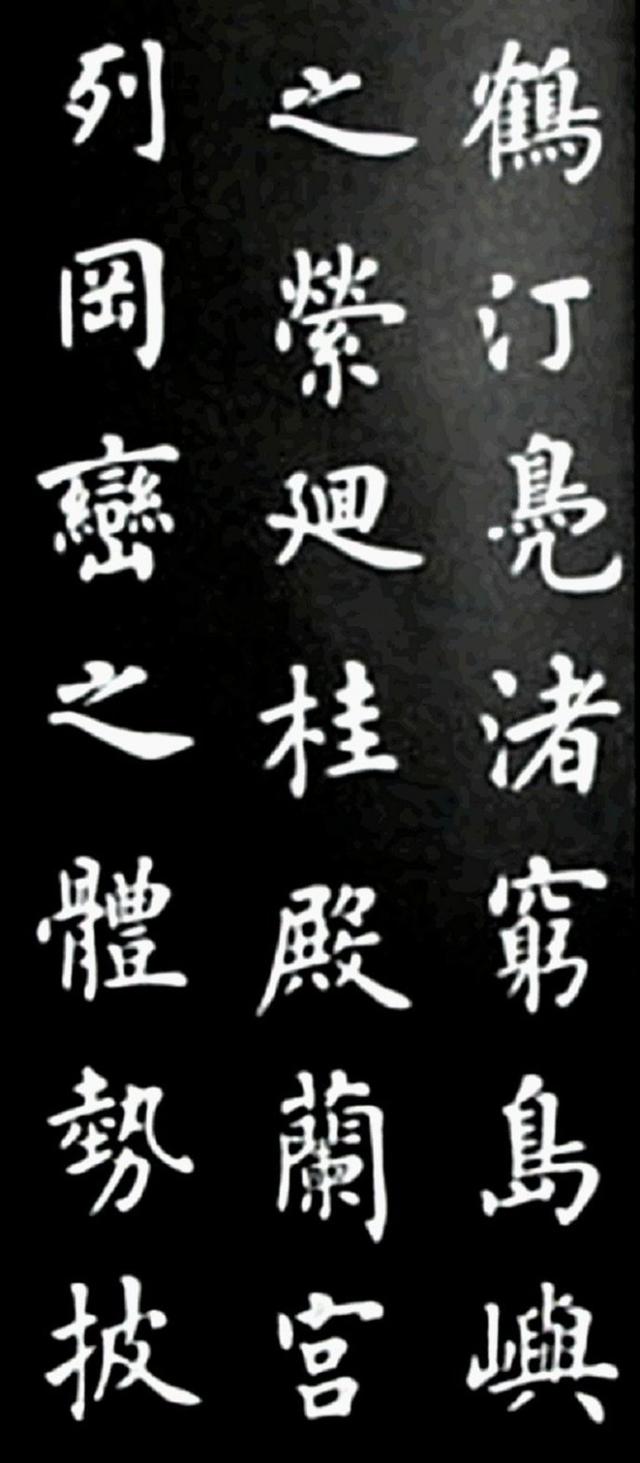 鶴汀鳧渚窮島嶼
之縈廻桂殿蘭宮
列岡巒之體勢披